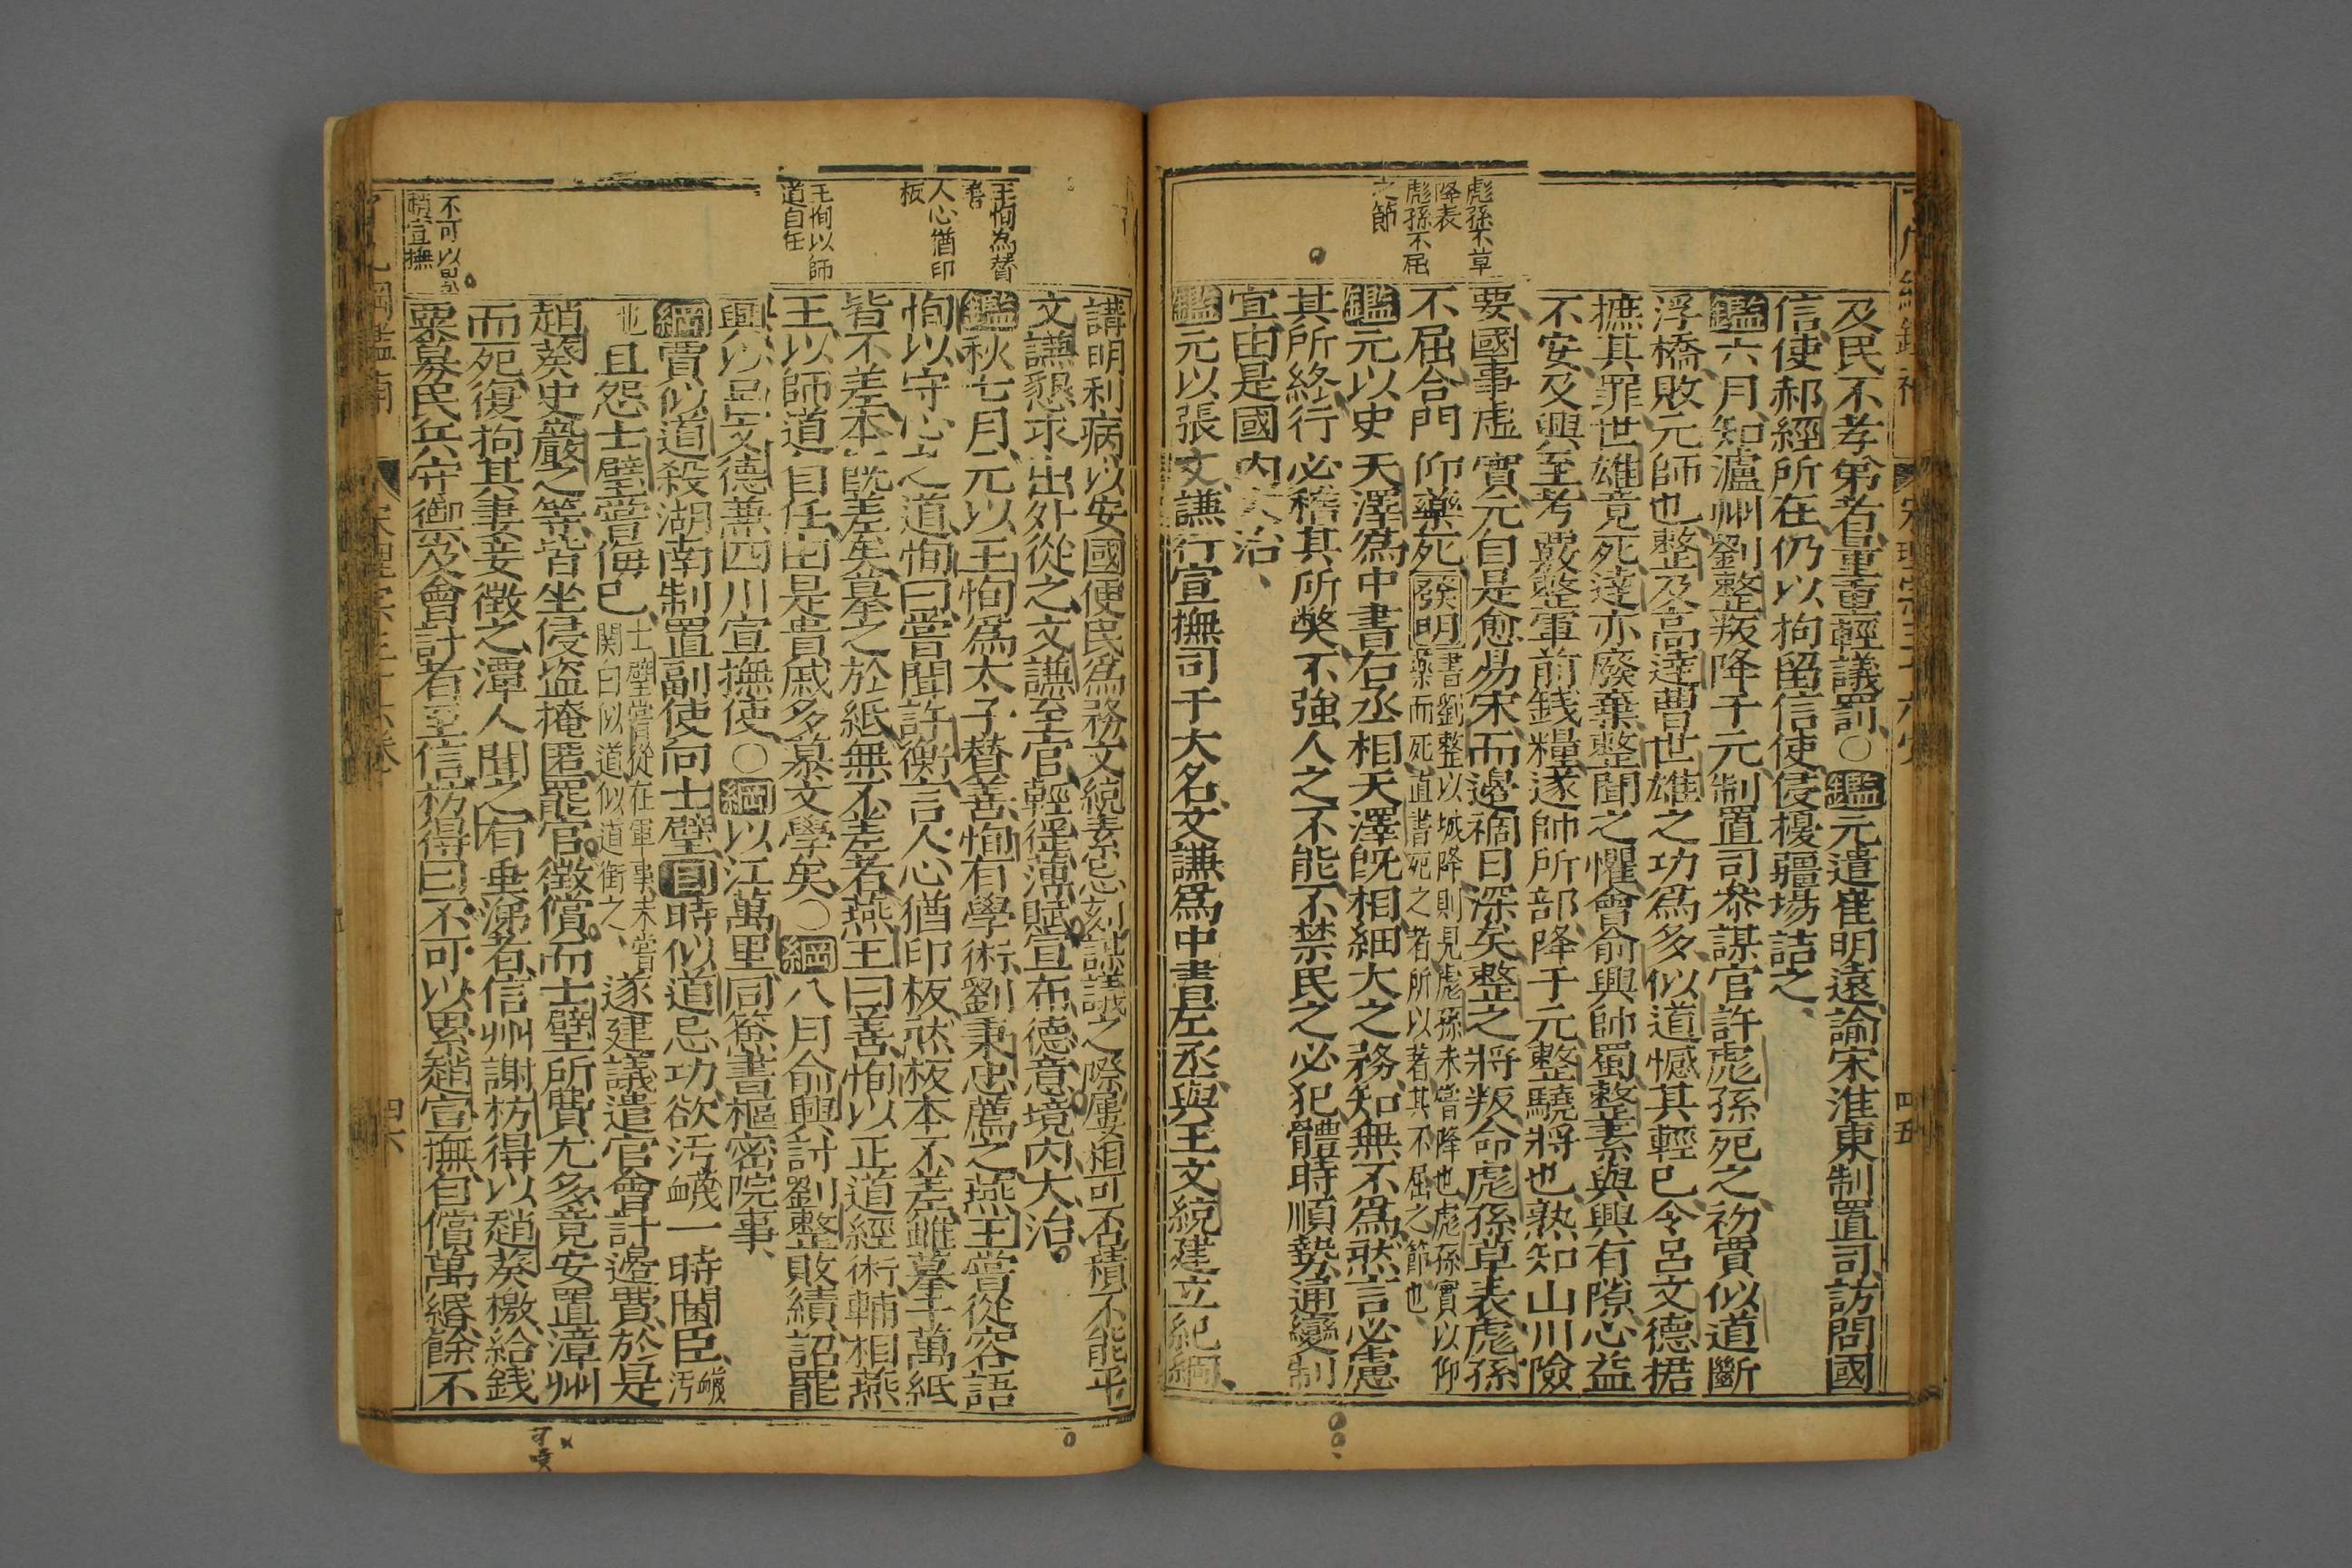 彪孫不草
降表
彪孫不屈
之節
及民不孝弟者量重輕議罰○鑑元遣崔明遠諭宋淮東制置司訪問國
信使郝經所在仍以拘留信使侵擾疆場詰之
鑑六月知瀘州劉整叛降于元制置司叅謀官許彪孫死之初賈似道斷
浮橋敗元師也整及高達曹世雄之功爲多似道憾其輕已令呂文德捃
摭其罪世雄竟死達亦廢棄整聞之懼會俞興帥蜀整素與興有隙心益
不安及興至考覈整軍前錢糧遂帥所部降于元整驍將也熟知山川險
要國事虛實元自是愈易宋而邊禍日深矣整之將叛命彪孫草表彪孫
不屈合門仰藥死發明書劉整以城降則見彪孫未嘗降也彪孫實以仰
藥而死直書死之者所以著其不屈之節也
鑑元以史天澤爲中書右丞相天澤旣相細大之務知無不爲然言必慮
其所終行必稽其所弊不強人之不能不禁民之必犯體時順勢通變制
宜由是國內大治
鑑元以張文謙行宣撫司于大名文謙爲中書左丞與王文統建立紀綱
四五
王恂為賛
善
人心猶印
板
王恂以師
道自任
不可以累
趙宣撫
講明利病以安國便民爲務文統素忌刻謨謀之際屢相可否積不能平
文謙懇求出外從之文謙至官輕徭薄賦宣布德意境內大治
鑑秋七月元以王恂爲太子賛善恂有學術劉秉忠薦之燕王嘗從容語
恂以守心之道恂曰嘗聞許衡言人心猶印板然板本不差雖摹千萬紙
皆不差本旣差矣摹之於紙無不差者燕王曰善恂以正道經術輔相燕
王以師道自任由是貴戚多慕文學矣○綱八月俞興討劉整敗績詔罷
興以呂文德兼四川宣撫使○綱以江萬里同簽書樞密院事
綱賈似道殺湖南制置副使向士璧目時似道忌功欲汚衊一時閫臣衊汚
也且怨士璧嘗侮已士璧嘗從在軍事未嘗
關白似道似道銜之遂建議遣官會計邊費於是
趙葵史嚴之等皆坐侵盜掩匿罷官徵償而士璧所費尤多竟安置漳州
而死復拘其妻妾徵之潭人聞之有垂涕者信州謝枋得以趙葵檄給錢
粟募民兵守禦及會計者至信枋得曰不可以累趙宣撫自償萬緡餘不
四六